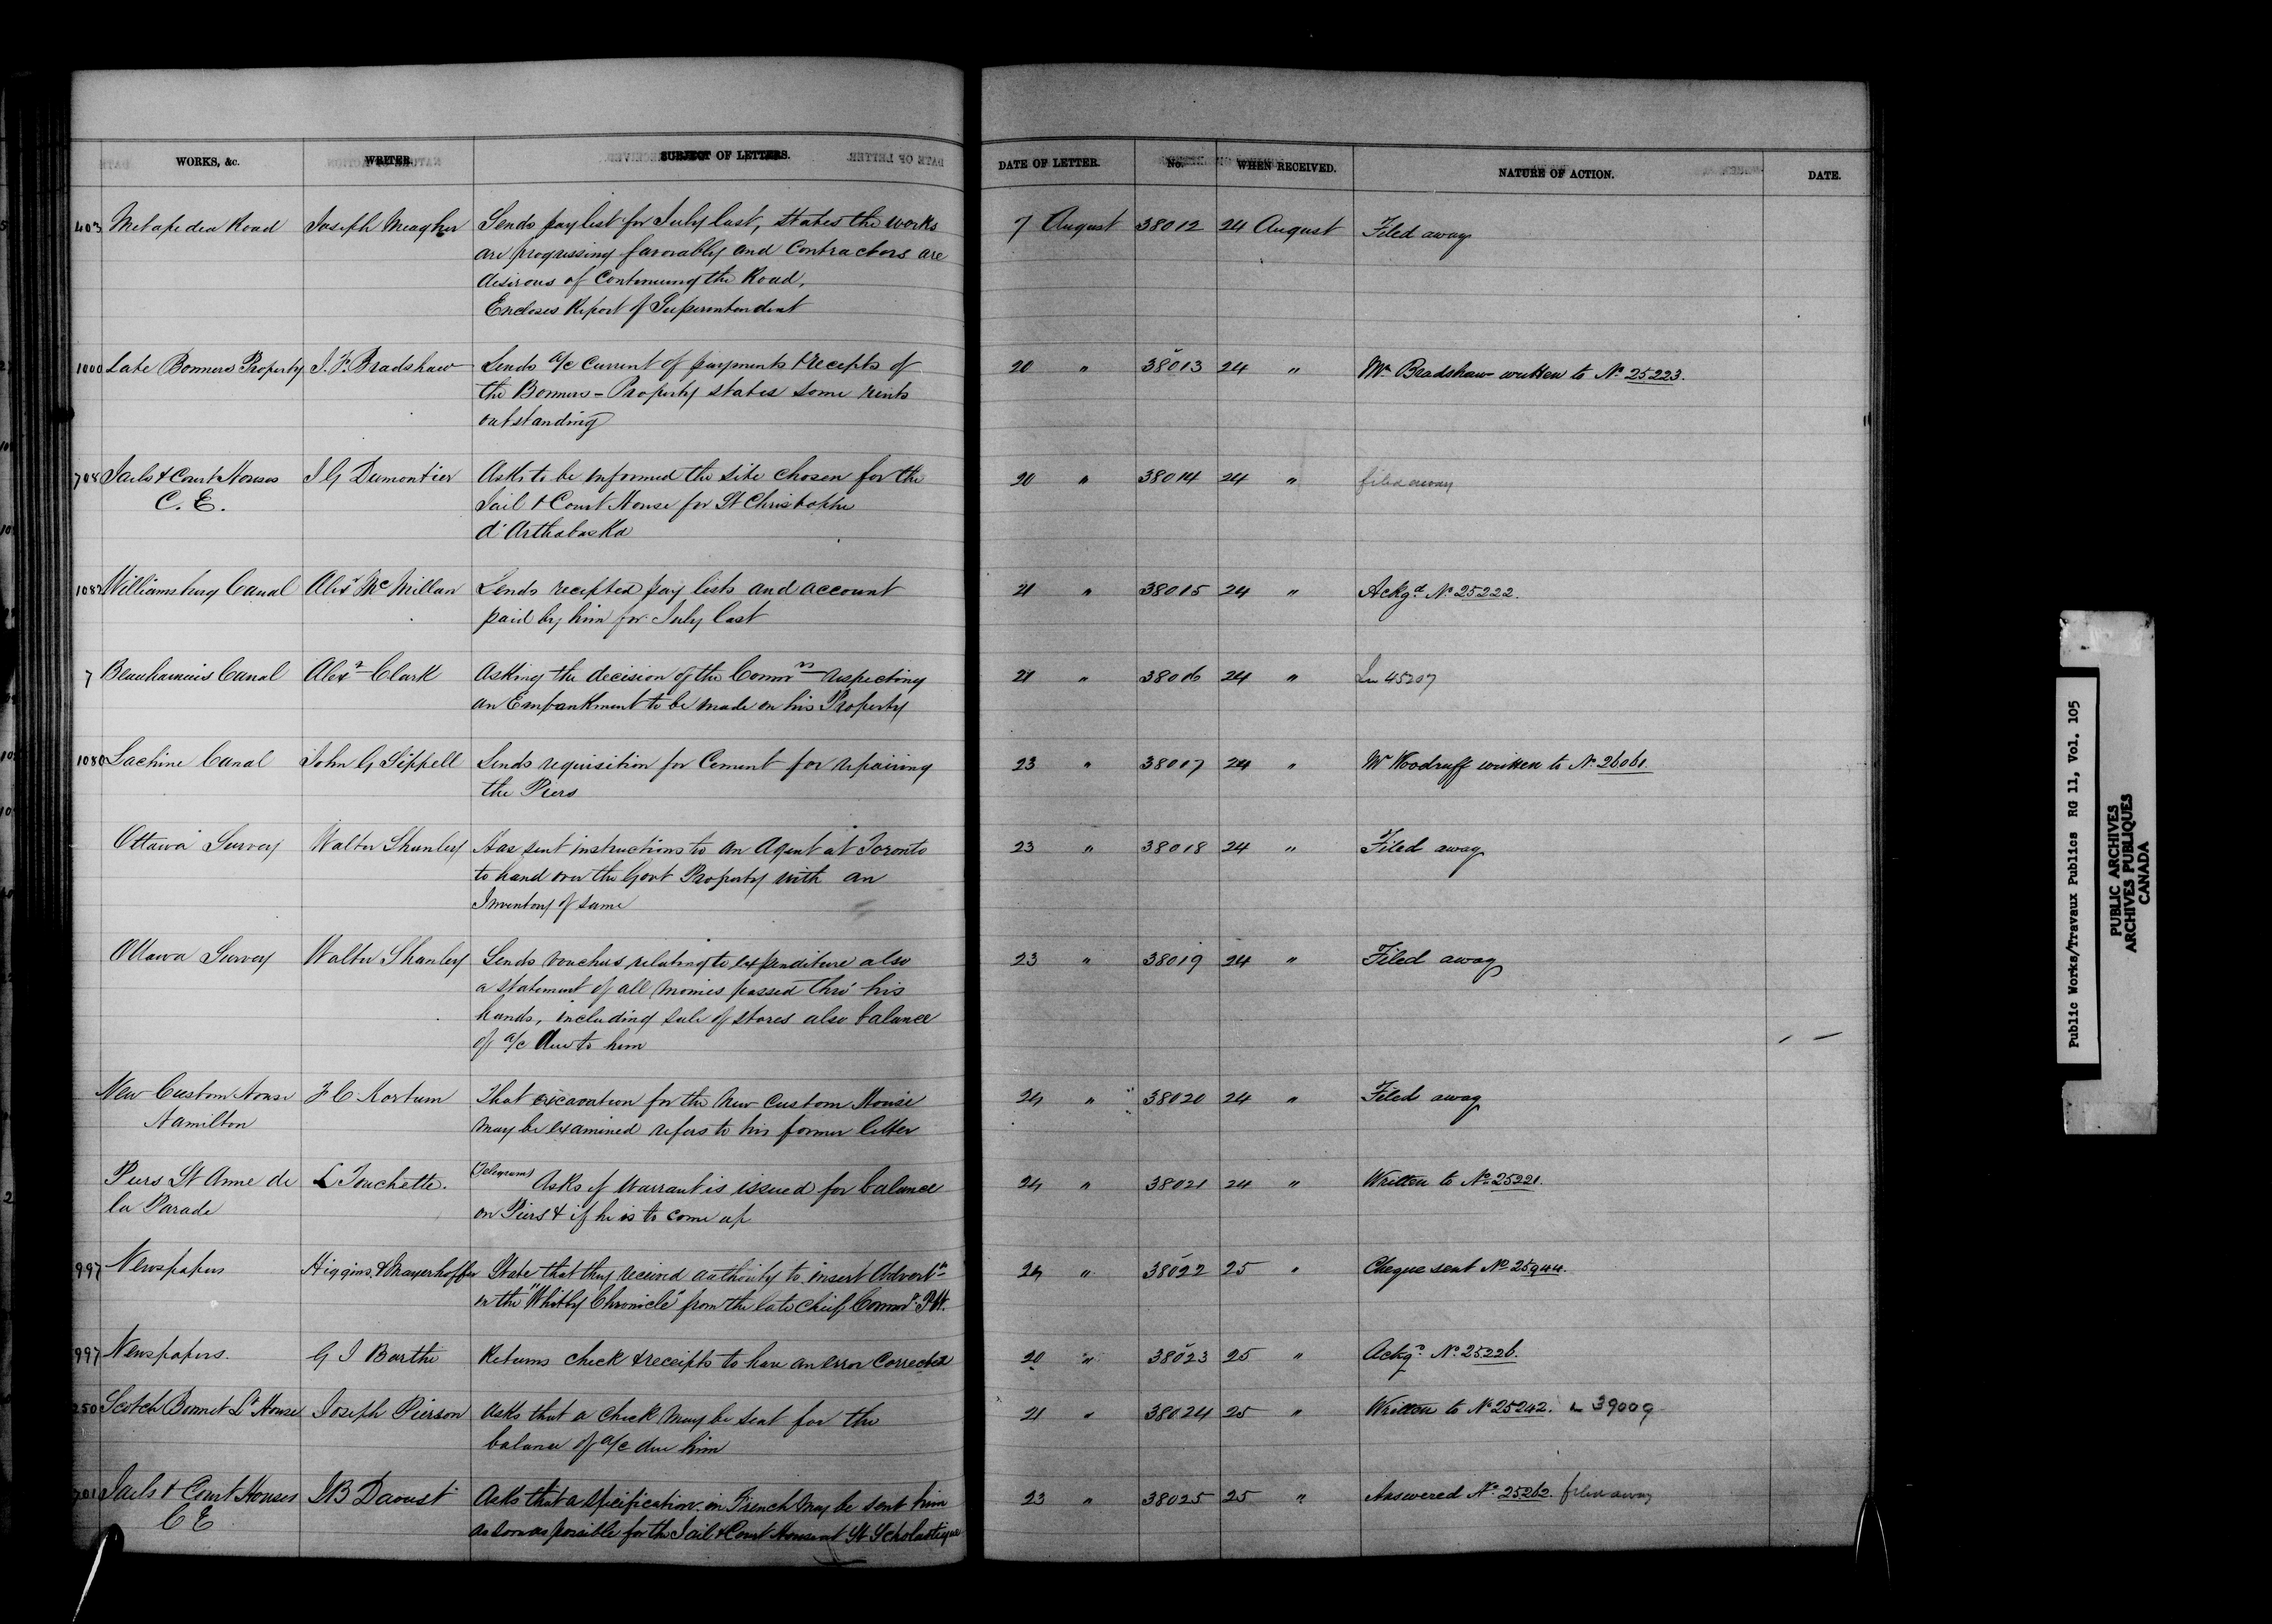 WORKS, &c. WRITER. SUBJECT OF LETTERS. DATE OF LETTER. No. WHEN RECEIVED. NATURE OF ACTION. DATE.
403 Metapedea Road Joseph Meagher Sends pay list for July last, states the works 7 August 38012 24 August Filed away
are progressing favorably and Contractors are
desirous of Continuing the Road,
Encloses Report of Superintendent
1000 Late Bonners Property J. F. Bradshaw Sends a/c Current of payments & recepts of 20 " 38013 24 " Mr Bradshaw written to No 25223.
the Bonners - Property states some rents
outstanding
708 Jails & Court Houses J G Dumontier Asks to be informed the site chosen for the 20 " 38014 24 " filed away
C. E. Jail & Court House for St Christophe
d'Arthabaska
1082 Williamsburg Canal Alexr McMillan Sends recepted pay lists and account 21 " 38015 24 " Ackgd No 25222.
paid by him for July last
7 Beauharnois Canal Alexr Clark Asking the decision of the Commrs respecting 21 " 38016 24 " 45207
an Empankment to be made on his Property
1080 Lachine Canal John G Sippell Sends requisition for Cement for repairing 23 " 38017 24 " Mr Woodruff written to No 26061
the Piers
Ottawa Survey Walter Shanley Has sent instructions to an Agent at Toronto 23 " 38018 24 " Filed away
to hand over the Govt Property with an
Inventory of same
Ottawa Survey Walter Shanley Sends vouchers relating to expenditure also 23 " 38019 24 " Filed away
a statement of all monies passed thro' his
hands, including sale of stores also balance
of a/c due to him
New Custom House F C Kortum That excavation for the New Custom House 24 " 38020 24 " Filed away
Hamilton may be examined refers to his former letter
Piers St Anne de L Touchette. (Telegram) Asks if Warrant is issued for balance 24 " 38021 24 " Written to No 25221.
la Parade on Piers & if he is to come up
997 Newspapers Higgins & Mayerhoffer State that they received authority to insert Advertn 24 " 38022 25 " Cheque sent No 25944.
in the "Whitby Chronicle" from the late Chief Commr P.W.
997 Newspapers. G I Barthe Returns check & receipts to have an error corrected 20 " 38023 25 " Ackgd No 25226.
250 Scotch Bonnet Lt House Joseph Pierson Asks that a check may be sent for the 21 " 38024 25 " Written to No 25242. L 39009
balance of a/c due him
701 Jails & Court Houses J B Daoust Asks that a specification in French may be sent him 23 " 38025 25 " Answered No 25262. filed away
C E as soon as possible for the Jail & Court House at St Scholastique
Public Works/Travaux Publics RG 11, Vol. 105
PUBLIC ARCHIVES
ARCHIVES PUBLIQUES
CANADA